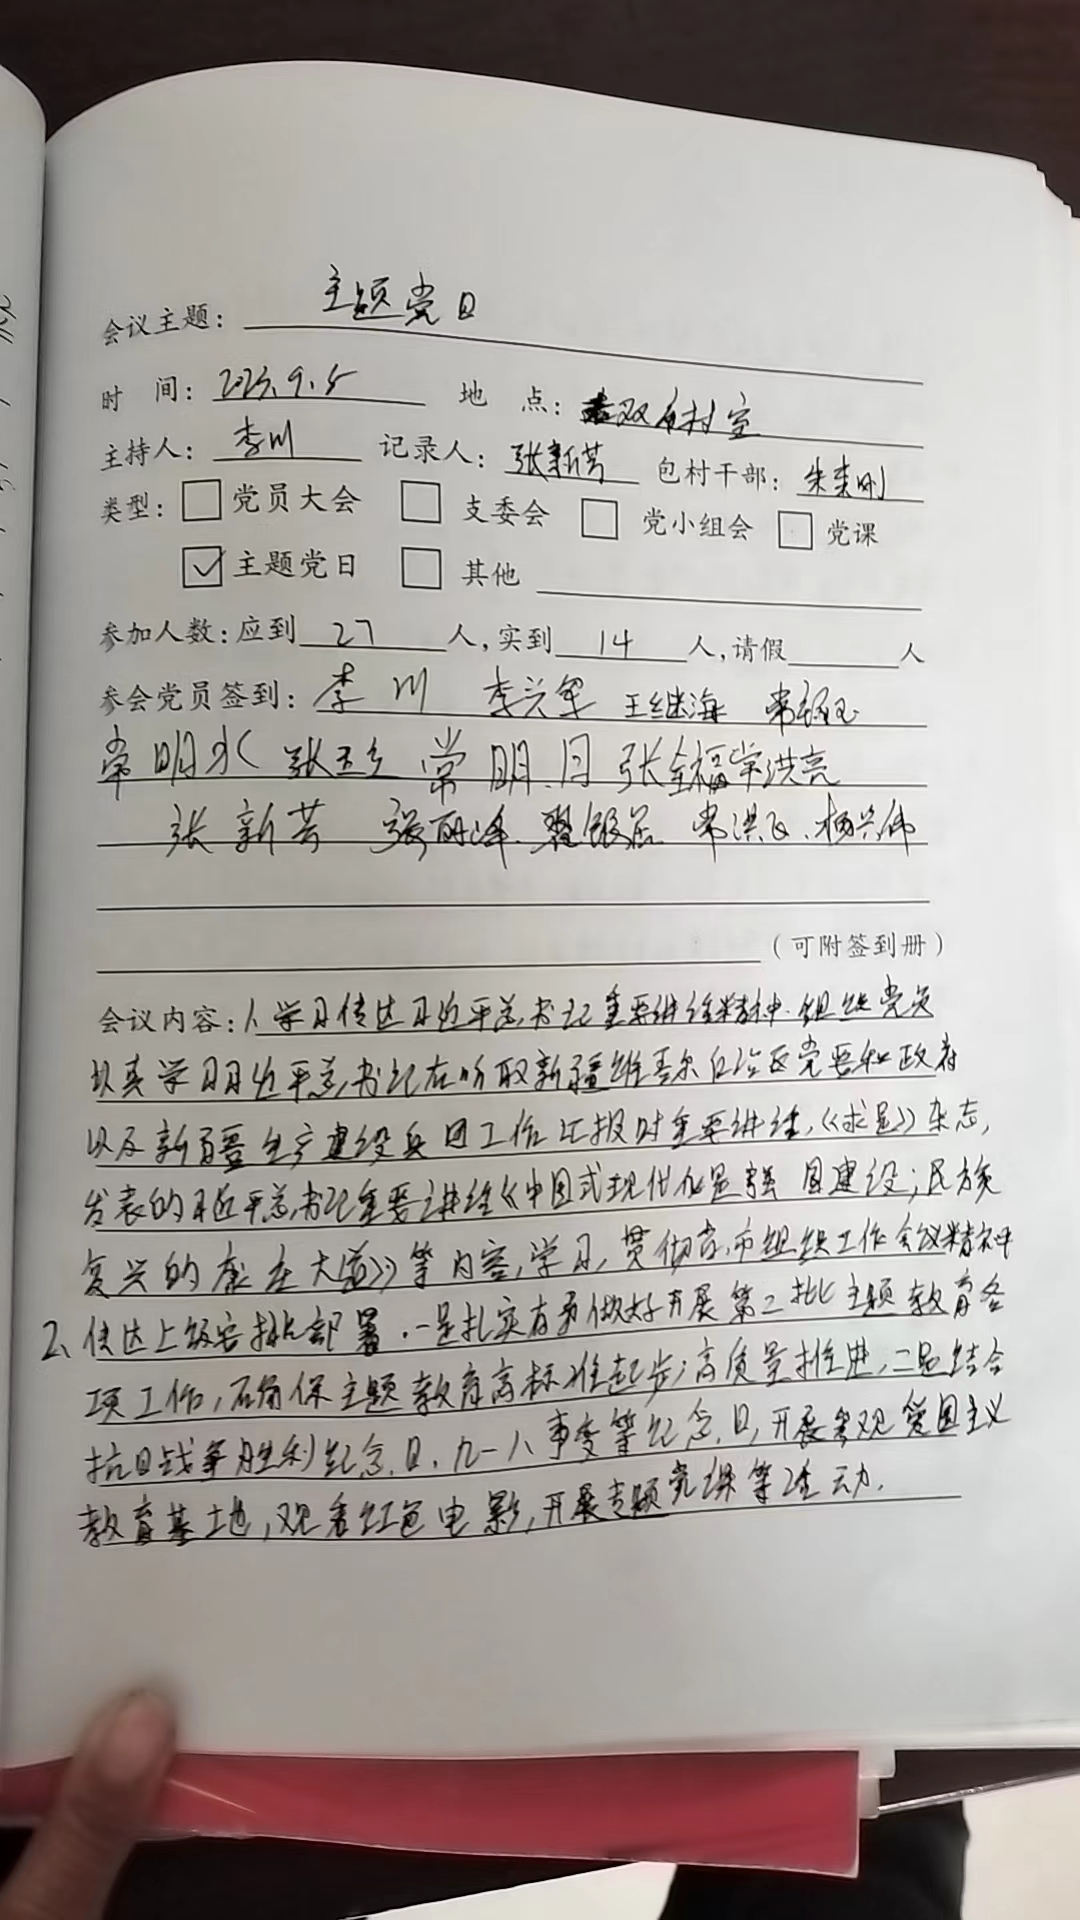 会议主题：主题党日
时 间：2023.9.5 地 点：双 村室
主持人：李川 记录人：张新芳 包村干部：朱 刚
类型：□党员大会 □支委会 □党小组会 □党课
☑主题党日 □其他
参加人数：应到27人，实到14人，请假 人
参会党员签到：李川 李兴军 王继海 常
常明水 张 常明月 张全福 常洪亮
张新芳 张丽峰. 翟银 常洪飞. 杨兴伟
（可附签到册）
会议内容：1、学习传达习近平总书记重要讲话精神.组织党员
认真学习习近平总书记在听取新疆维吾尔自治区党委和政府
以及新疆生产建设兵团工作汇报时重要讲话，《求是》杂志，
发表的习近平总书记重要讲话《中国式现代化是强国建设；民族
复兴的康庄大道》等内容，学习，贯彻省，市组织工作会议精神
2、传达上级安排部署.一是扎实有序做好开展第二批主题教育各
项工作，确保主题教育高标准起步；高质量推进，二是结合
抗日战争胜利纪念日，九一八事变等纪念日，开展参观爱国主义
教育基地，观看红色电影，开展专题党课等活动.